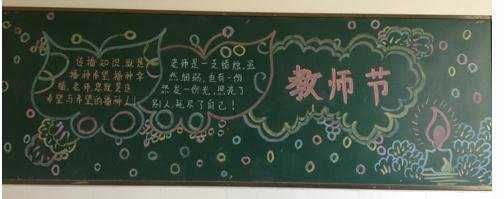 传播知识,就是
播种希望,播种幸
福。老师您就是这
希望与幸福的播种人!
老师是一支蜡烛,虽
然细弱,但有一份
热发一份光,照亮了
别人,耗尽了自己!
教师节